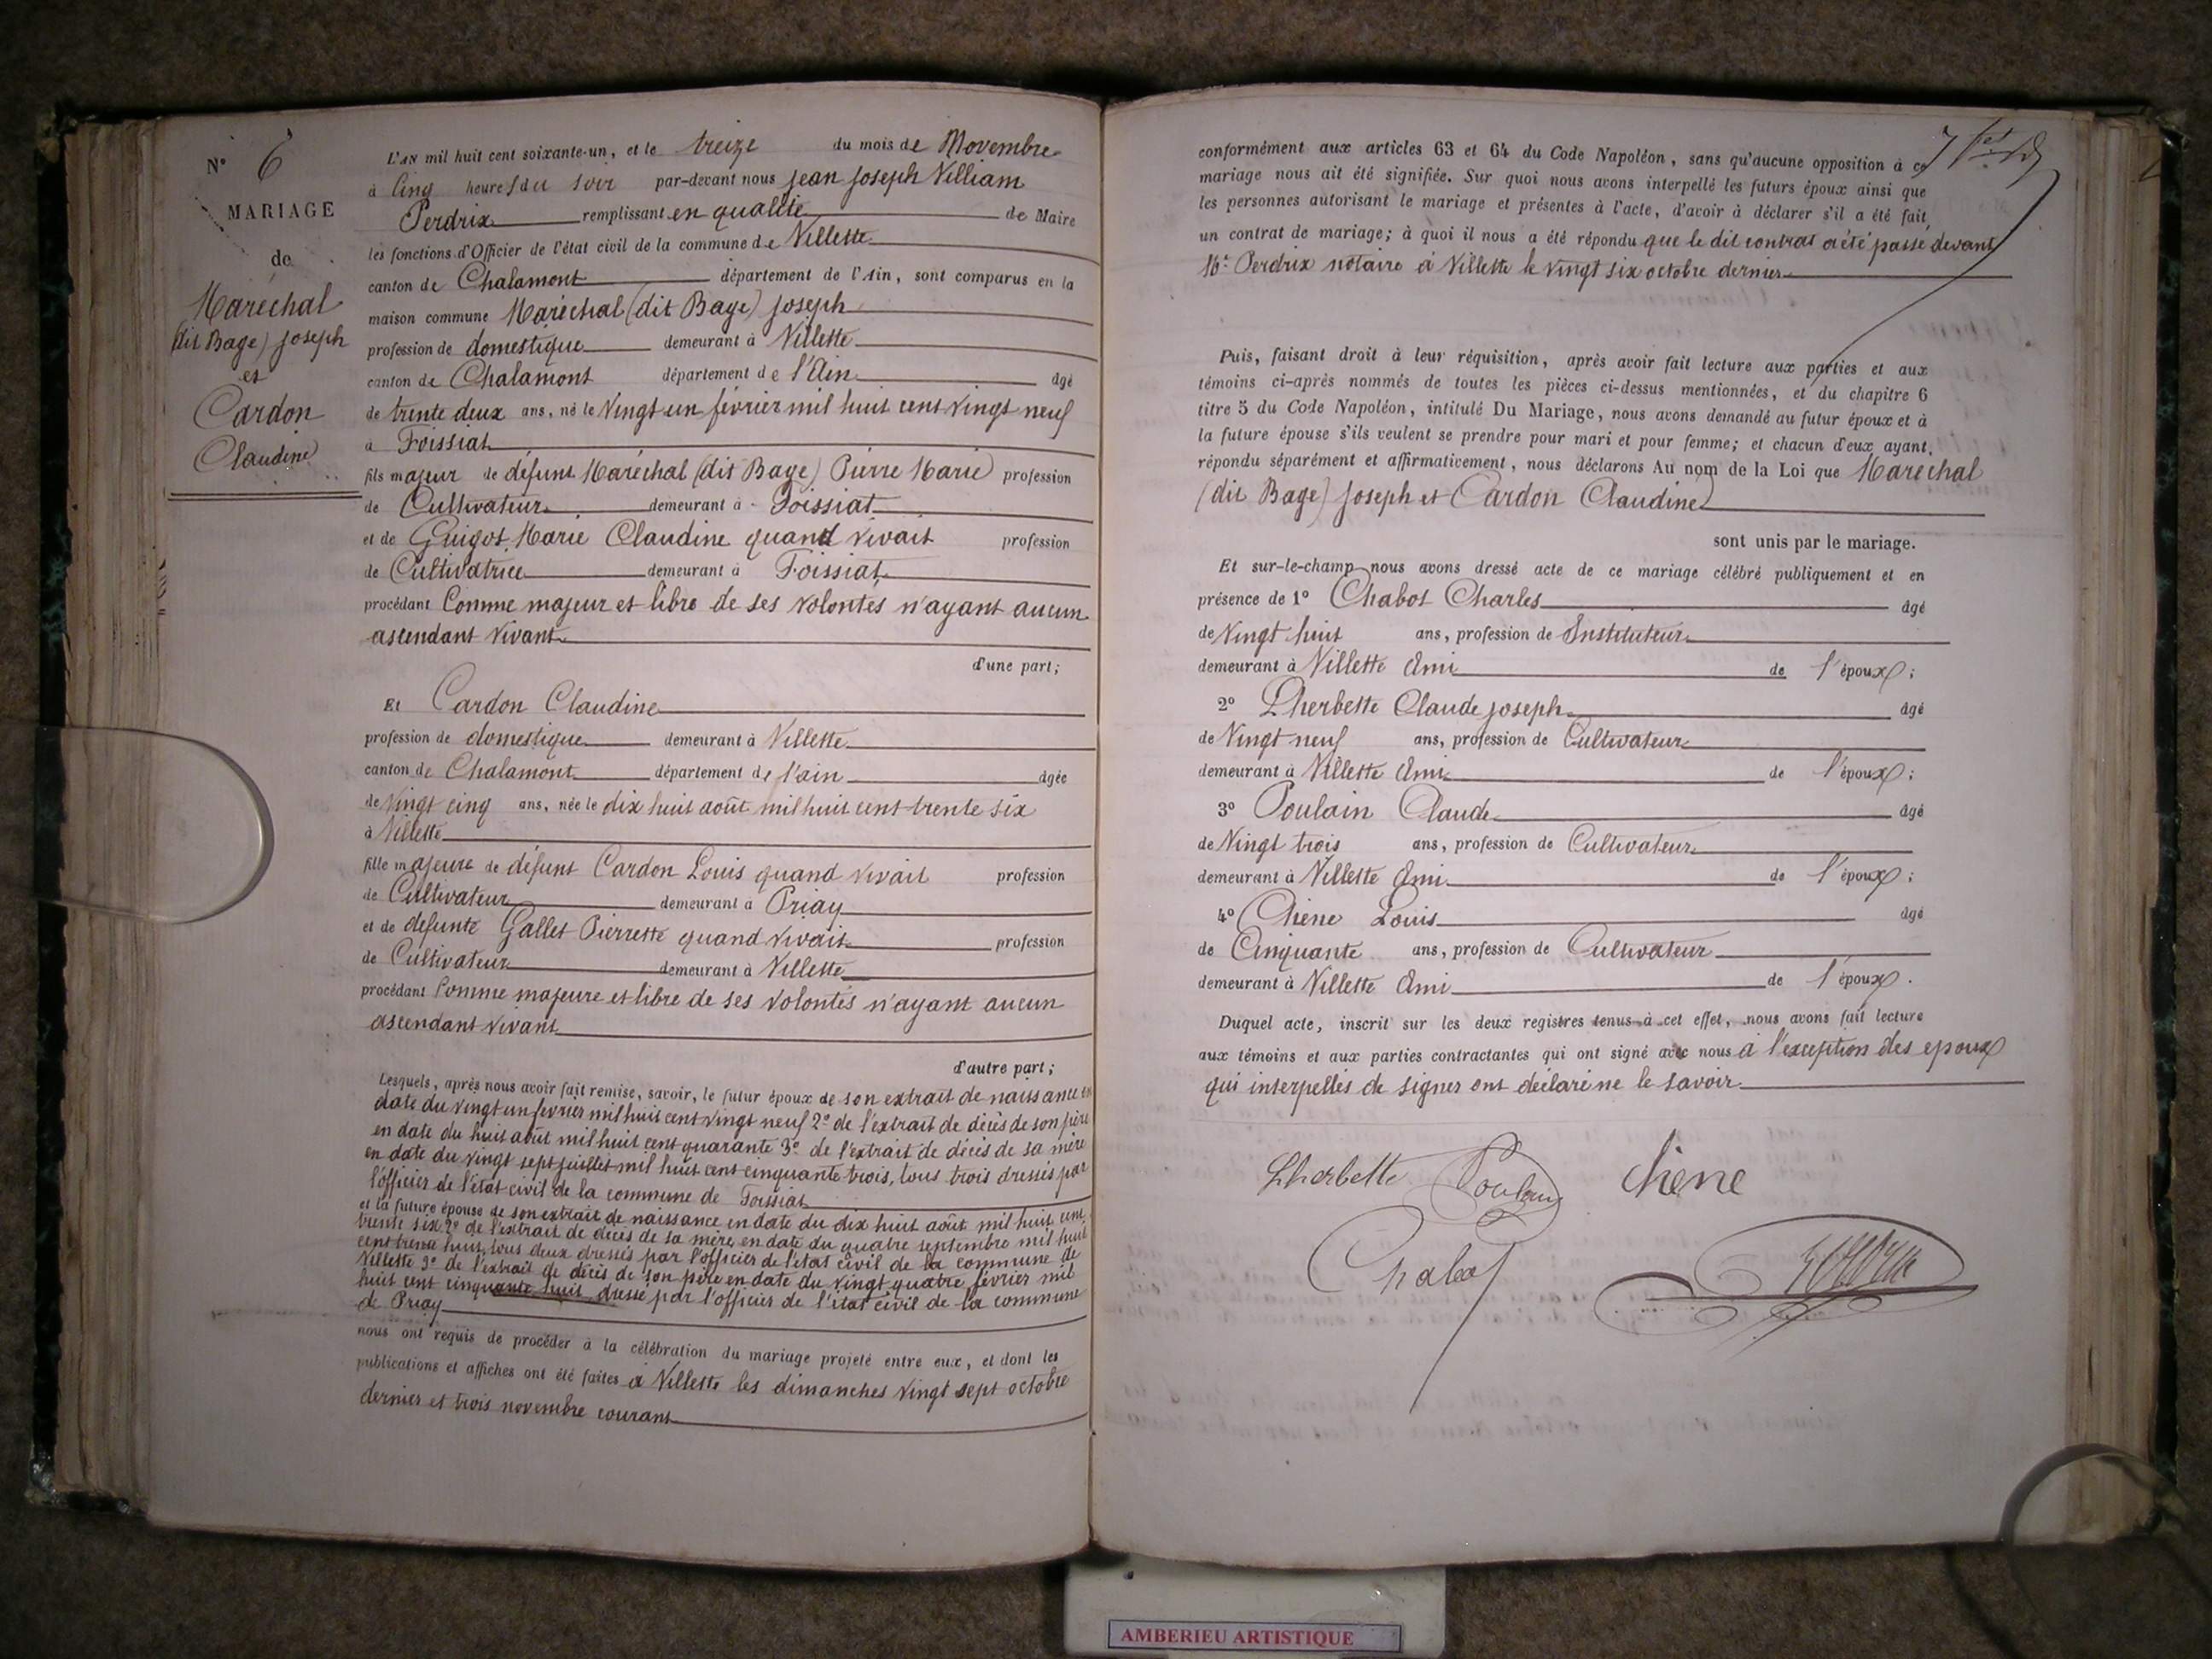 N° 6
MARIAGE
de
Maréchal
(dit Bage) Joseph
et
Cardon
Claudine
L'an mil huit cent soixante-un, et le treize du mois de Novembre
à Cinq heures du soir par-devant nous Jean Joseph Villiam
Perdrix remplissant en qualité de Maire
les fonctions d'Officier de l'état civil de la commune de Villette
canton de Chalamont département de l'Ain, sont comparus en la
maison commune Maréchal (dit Bage) Joseph
profession de domestique demeurant à Villette
canton de Chalamont département de l'Ain âgé
de trente deux ans, né le Vingt un février mil huit cent vingt neuf
à Foissiat
fils majeur de défunt Maréchal (dit Bage) Pierre Marie profession
de Cultivateur demeurant à Foissiat
et de Guigot Marie Claudine quand vivait profession
de Cultivatrice demeurant à Foissiat
procédant Comme majeur et libre de ses volontés n'ayant aucun
ascendant vivant
d'une part;
Et Cardon Claudine
profession de domestique demeurant à Villette
canton de Chalamont département de l'ain âgée
de Vingt cinq ans, née le dix huit août mil huit cent trente six
à Villette
fille majeure de défunt Cardon Louis quand vivait profession
de Cultivateur demeurant à Priay
et de défunte Gallet Pierrette quand vivait profession
de Cultivateur demeurant à Villette
procédant Comme majeure et libre de ses volontés n'ayant aucun
ascendant vivant
d'autre part;
Lesquels, après nous avoir fait remise, savoir, le futur époux de son extrait de naissance en
date du vingt un fevrier mil huit cent vingt neuf 2° de l'extrait de décès de son père
en date du huit août mil huit cent quarante 3° de l'extrait de décès de sa mère
en date du vingt sept juillet mil huit cent cinquante trois, tous trois dressés par
l'officier de l'état civil de la commune de Foissiat
et la future épouse de son extrait de naissance en date du dix huit août mil huit cent
trente six 2° de l'extrait de décès de sa mère en date du quatre septembre mil huit
cent trente huit, tous deux dressés par l'officier de l'état civil de la commune de
Villette 3° de l'extrait de décès de son père en date du vingt quatre février mil
huit cent cinquante huit dressé par l'officier de l'état civil de la commune
de Priay
nous ont requis de procéder à la célébration du mariage projeté entre eux, et dont les
publications et affiches ont été faites à Villette les dimanches vingt sept octobre
dernier et trois novembre courant
conformément aux articles 63 et 64 du Code Napoléon, sans qu'aucune opposition à ce
mariage nous ait été signifiée. Sur quoi nous avons interpellé les futurs époux ainsi que
les personnes autorisant le mariage et présentes à l'acte, d'avoir à déclarer s'il a été fait
un contrat de mariage; à quoi il nous a été répondu que le dit contrat a été passé devant
Me Perdrix notaire à Villette le vingt six octobre dernier
Puis, faisant droit à leur réquisition, après avoir fait lecture aux parties et aux
témoins ci-après nommés de toutes les pièces ci-dessus mentionnées, et du chapitre 6
titre 5 du Code Napoléon, intitulé Du Mariage, nous avons demandé au futur époux et à
la future épouse s'ils veulent se prendre pour mari et pour femme; et chacun d'eux ayant
répondu séparément et affirmativement, nous déclarons Au nom de la Loi que Maréchal
(dit Bage) Joseph et Cardon Claudine
sont unis par le mariage.
Et sur-le-champ nous avons dressé acte de ce mariage célébré publiquement et en
présence de 1° Chabot Charles âgé
de Vingt huit ans, profession de Instituteur
demeurant à Villette Ami de l'époux;
2° Lherbette Claude Joseph âgé
de Vingt neuf ans, profession de Cultivateur
demeurant à Villette Ami de l'époux;
3° Poulain Claude âgé
de Vingt trois ans, profession de Cultivateur
demeurant à Villette Ami de l'époux;
4° Chêne Louis âgé
de Cinquante ans, profession de Cultivateur
demeurant à Villette Ami de l'époux.
Duquel acte, inscrit sur les deux registres tenus à cet effet, nous avons fait lecture
aux témoins et aux parties contractantes qui ont signé avec nous à l'exception des epoux
qui interpellés de signer ont déclaré ne le savoir
Lherbette Poulain chêne
Chabot
AMBERIEU ARTISTIQUE